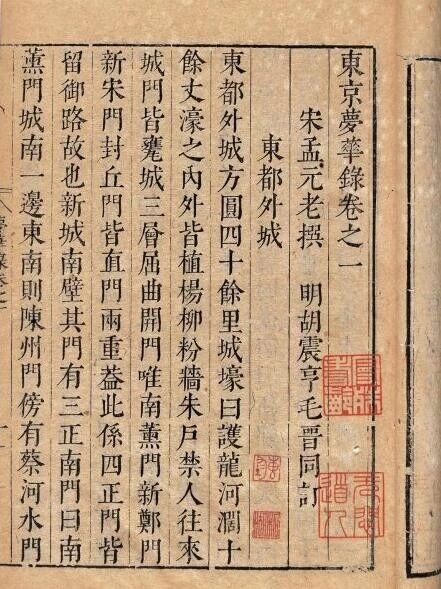 東京夢華錄卷之一
宋孟元老撰　明胡震亨毛晉同訂
東都外城
東都外城方圓四十餘里城壕曰護龍河濶十
餘丈濠之內外皆植楊柳粉牆朱戶禁人往來
城門皆甕城三層屈曲開門唯南薰門新鄭門
新宋門封丘門皆直門兩重葢此係四正門皆
留御路故也新城南壁其門有三正南門曰南
薰門城南一邊東南則陳州門傍有蔡河水門